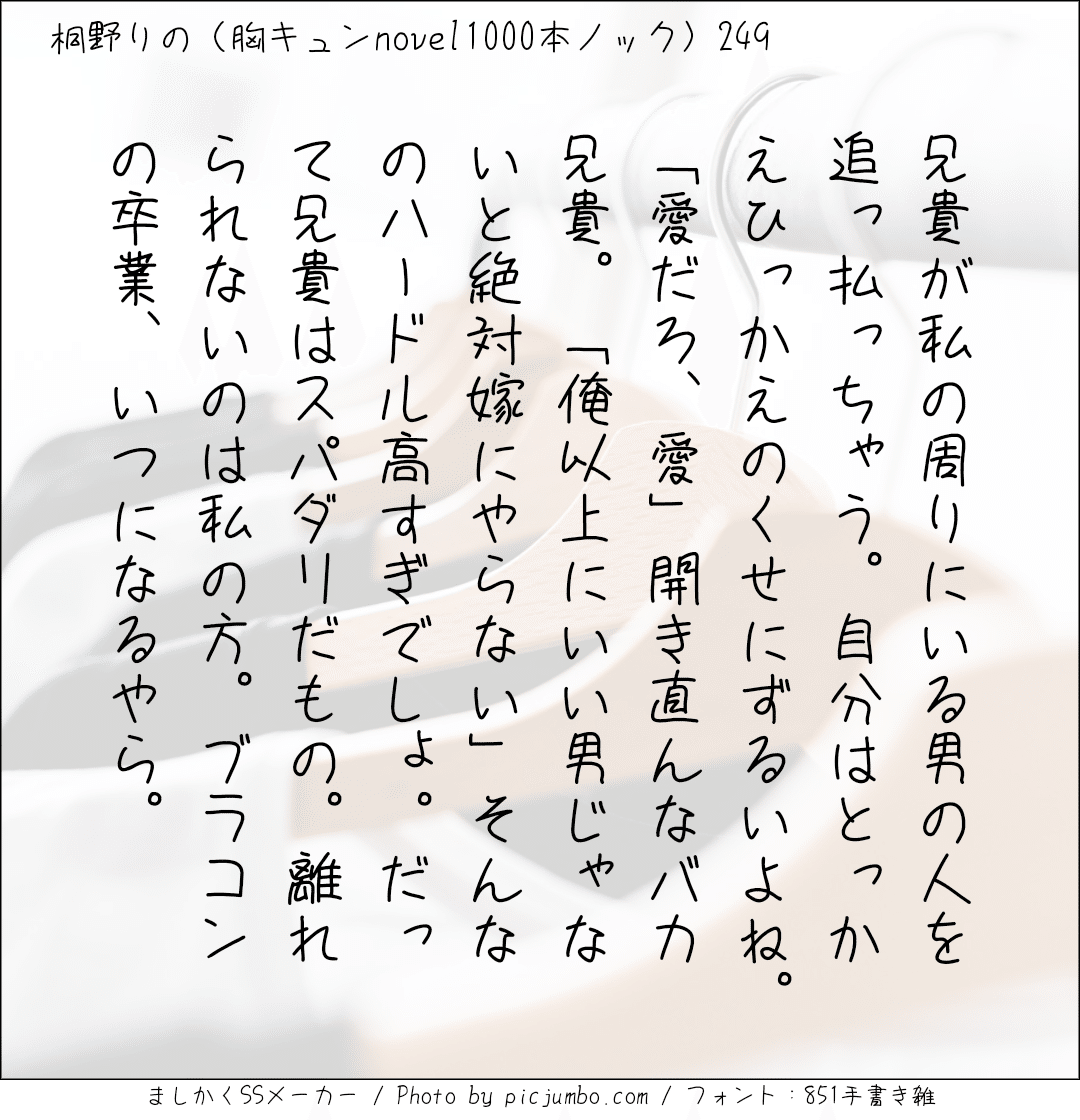 桐野りの（胸キュンnovel1000本ノック）249
兄貴が私の周りにいる男の人を
追っ払っちゃう。自分はとっか
えひっかえのくせにずるいよね。
「愛だろ、愛」開き直んなバカ
兄貴。「俺以上にいい男じゃな
いと絶対嫁にやらない」そんな
のハードル高すぎでしょ。だっ
て兄貴はスパダリだもの。離れ
られないのは私の方。ブラコン
の卒業、いつになるやら。
ましかくSSメーカー / Photo by picjumbo.com / フォント：851手書き雑